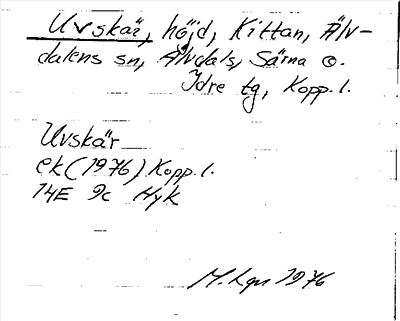 Uvskär, höjd, Kittan, Älv-
dalens sn, Älvdals, Särna o.
Idre tg, Kopp. l.
Uvskär
ek (1976) Kopp. l.
14E 9c Hyk
M. Lgn 1976